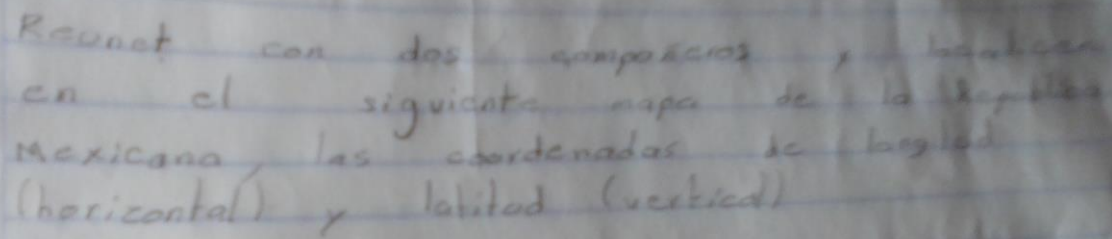 Reunet con dos compañeros y localicen
en el siguiente mapa de la República
Mexicana, las coordenadas de longitud
(horizontal) y latitud (vertical)